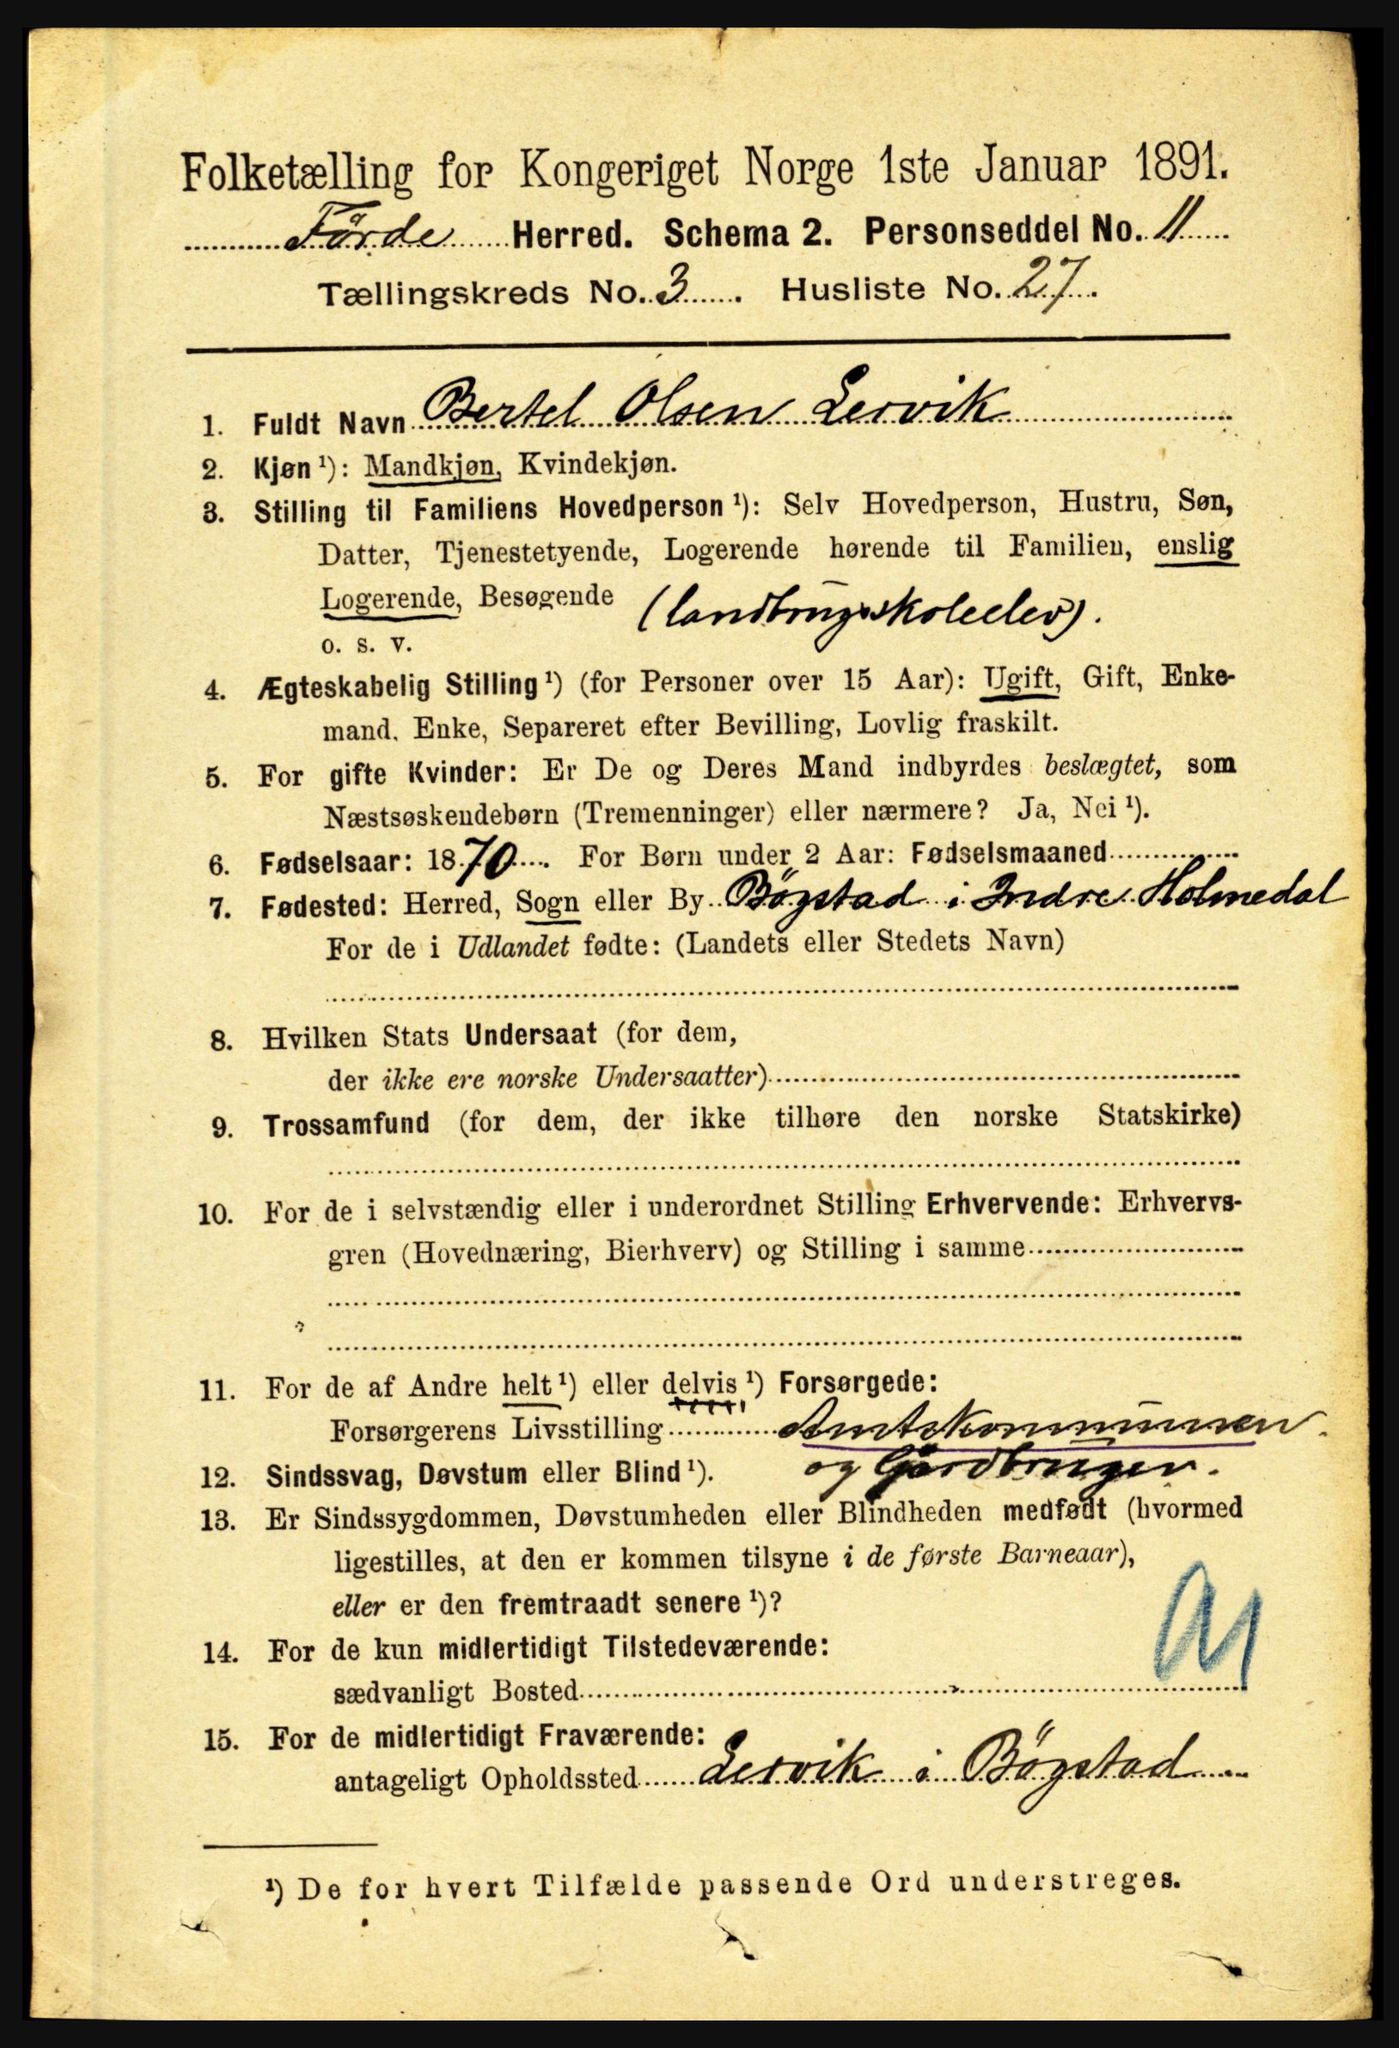 Folketælling for Kongeriget Norge 1ste Januar 1891.
Förde Herred. Schema 2. Personseddel No. 11
Tællingskreds No. 3. Husliste No. 27.
1. Fuldt Navn Bertel Olsen Lervik
2. Kjøn ¹): Mandkjøn, Kvindekjøn.
3. Stilling til Familiens Hovedperson ¹): Selv Hovedperson, Hustru, Søn,
Datter, Tjenestetyende, Logerende hørende til Familien, enslig
Logerende, Besøgende (landbrugsskoleelev).
o. s. v.
4. Ægteskabelig Stilling ¹) (for Personer over 15 Aar): Ugift, Gift, Enke-
mand, Enke, Separeret efter Bevilling, Lovlig fraskilt.
5. For gifte Kvinder: Er De og Deres Mand indbyrdes beslægtet, som
Næstsøskendebørn (Tremenninger) eller nærmere? Ja, Nei ¹).
6. Fødselsaar: 1870. For Børn under 2 Aar: Fødselsmaaned
7. Fødested: Herred, Sogn eller By Bögstad i Indre Holmedal
For de i Udlandet fødte: (Landets eller Stedets Navn)
8. Hvilken Stats Undersaat (for dem,
der ikke ere norske Undersaatter)
9. Trossamfund (for dem, der ikke tilhøre den norske Statskirke)
10. For de i selvstændig eller i underordnet Stilling Erhvervende: Erhvervs-
gren (Hovednæring, Bierhverv) og Stilling i samme
11. For de af Andre helt ¹) eller delvis ¹) Forsørgede:
Forsørgerens Livsstilling Amtskommunen
og Gårdbruger.
12. Sindssvag, Døvstum eller Blind ¹).
13. Er Sindssygdommen, Døvstumheden eller Blindheden medfødt (hvormed
ligestilles, at den er kommen tilsyne i de første Barneaar),
eller er den fremtraadt senere ¹)?
14. For de kun midlertidigt Tilstedeværende:
sædvanligt Bosted
15. For de midlertidigt Fraværende:
antageligt Opholdssted Lervik i Bögstad
¹) De for hvert Tilfælde passende Ord understreges.